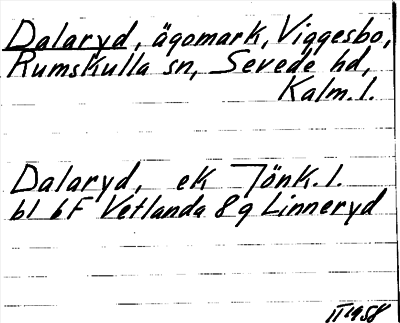 Dalaryd, ägomark, Viggesbo,
Rumskulla sn, Sevede hd,
Kalm.l.
Dalaryd, ek Jönk.l.
bl 6F Vetlanda 8g Linneryd
II 1958